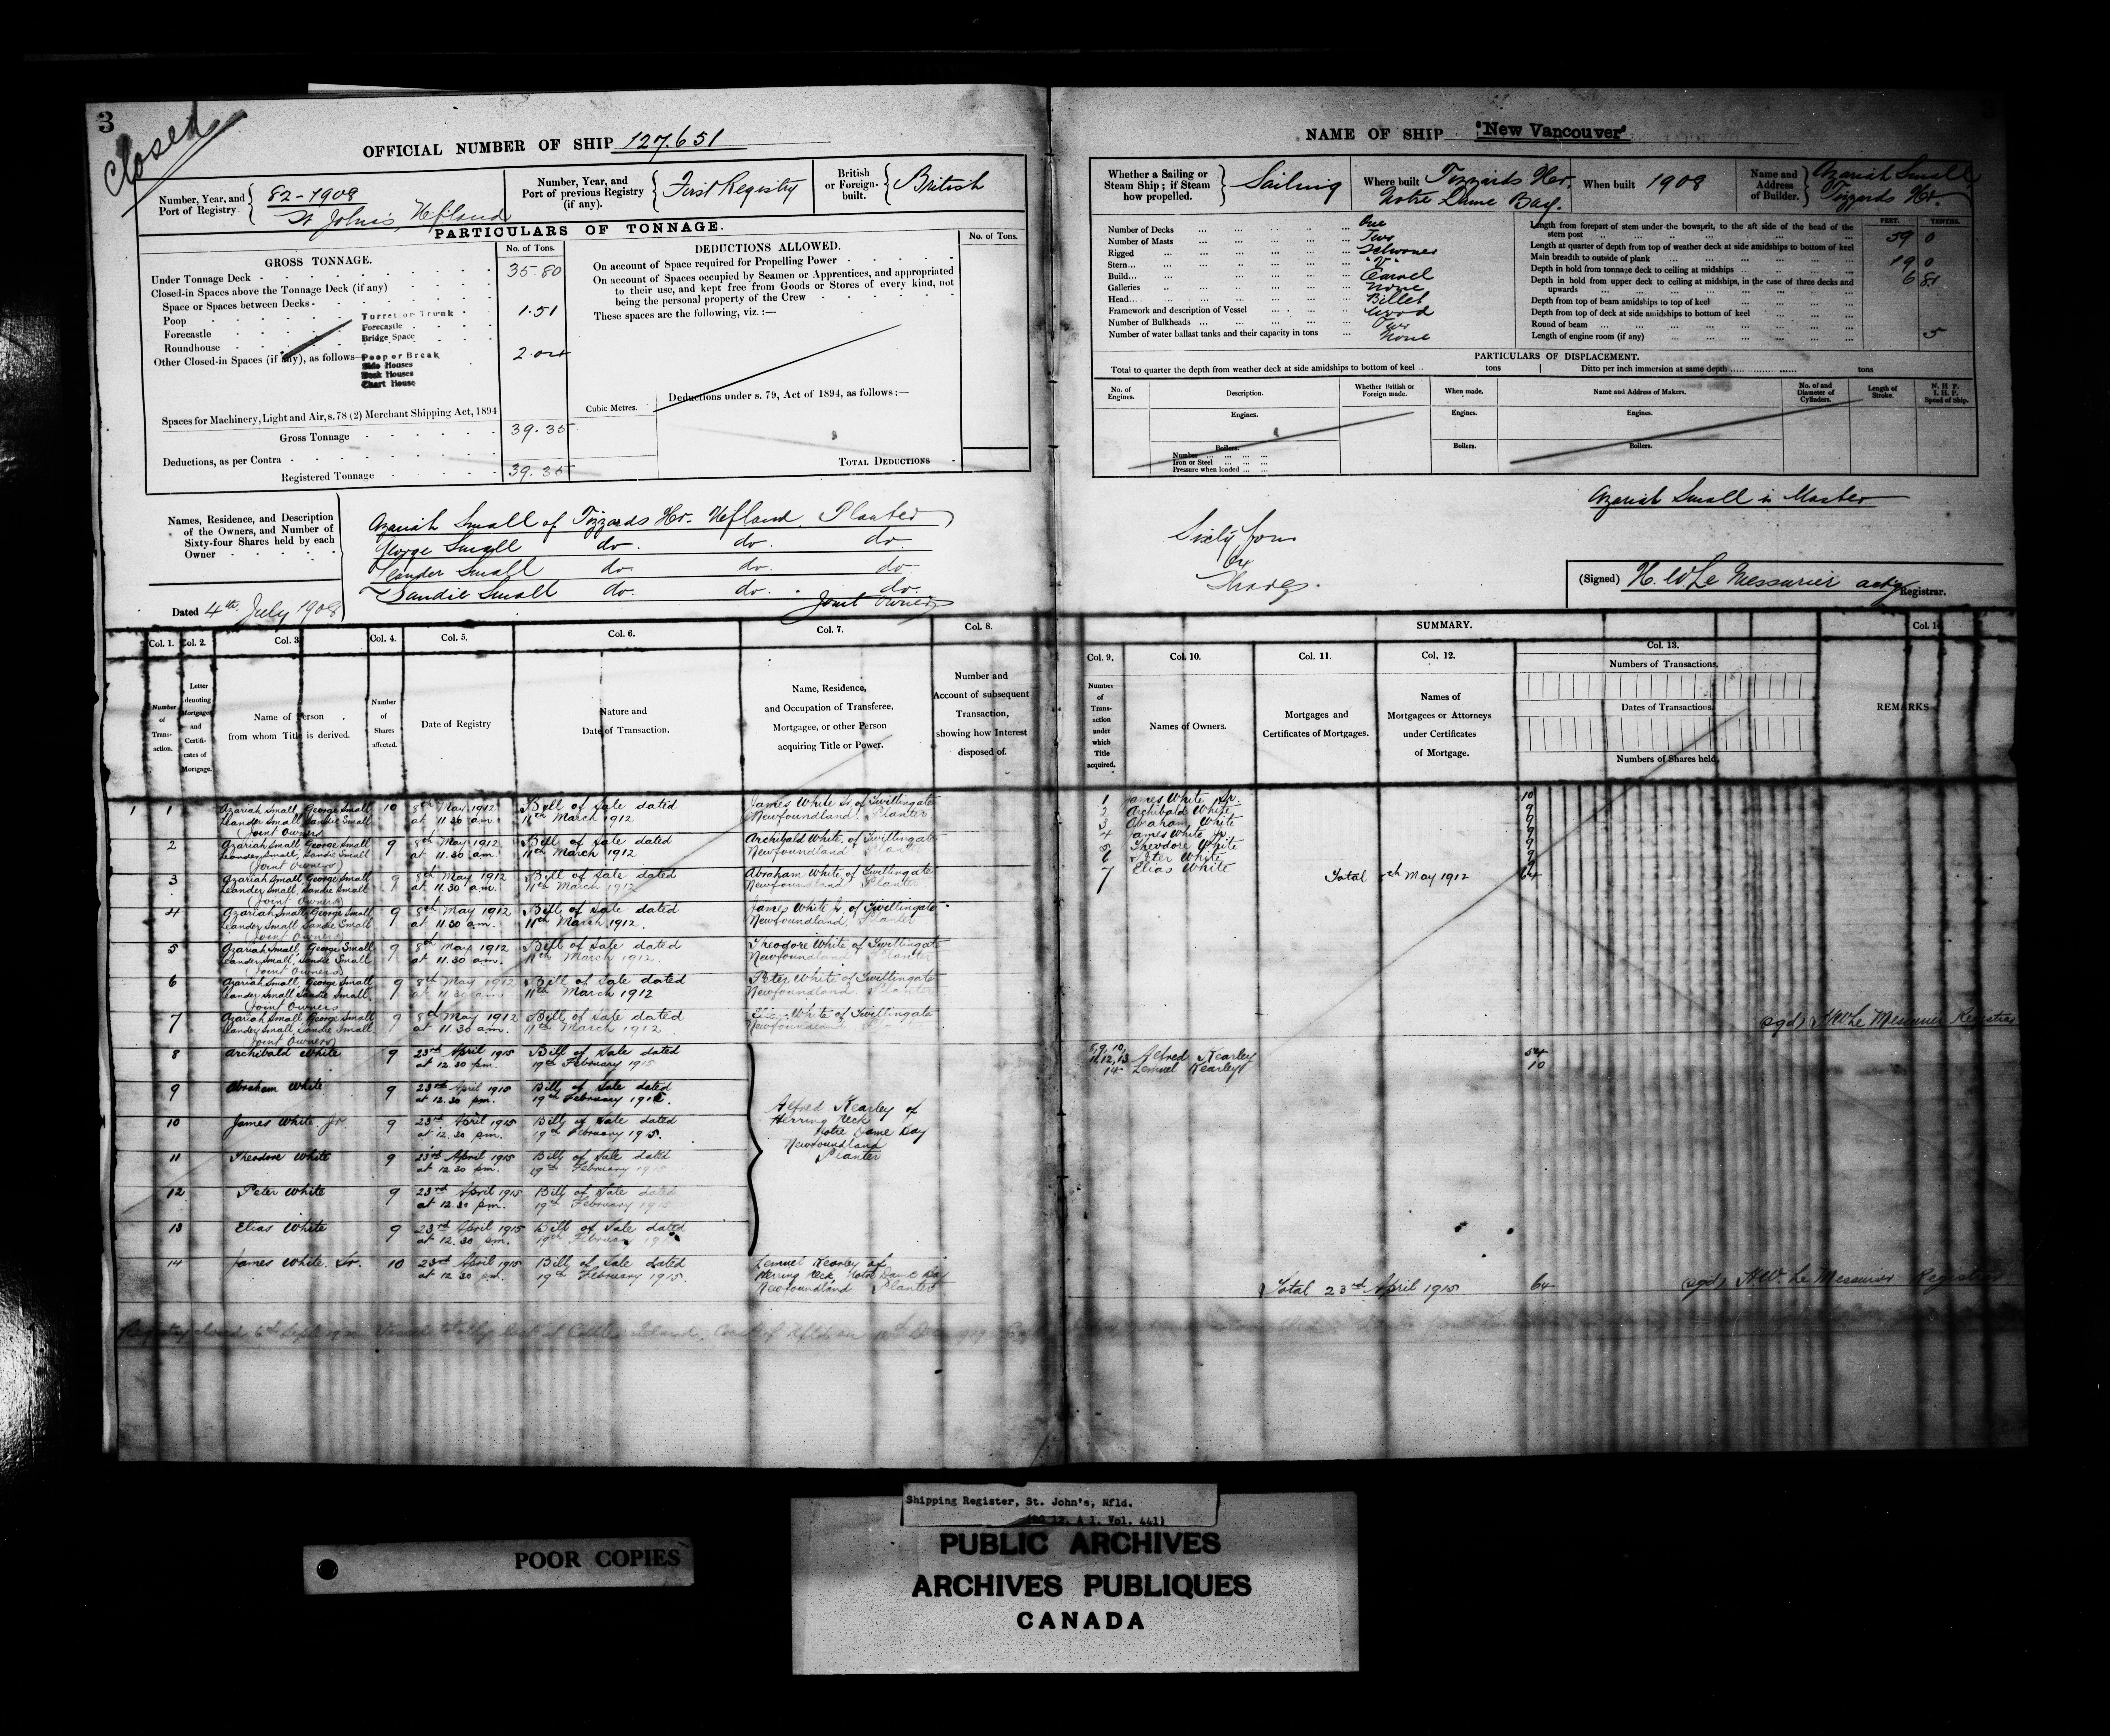 3
Closed
OFFICIAL NUMBER OF SHIP 127.651
Number, Year, and Port of Registry
82-1908
St John's, Nfland
Number, Year, and Port of previous Registry (if any).
First Registry
British or Foreign-built.
British
PARTICULARS OF TONNAGE.
GROSS TONNAGE.
No. of Tons.
Under Tonnage Deck 35.80
Closed-in Spaces above the Tonnage Deck (if any)
Space or Spaces between Decks
Poop
Forecastle
Roundhouse
Other Closed-in Spaces (if any), as follows
Turret or Trunk
Forecastle
Bridge Space
1.51
Poop or Break
Side Houses
Deck Houses
Chart House
Spaces for Machinery, Light and Air, s. 78 (2) Merchant Shipping Act, 1894
Gross Tonnage 39.35
Deductions, as per Contra
Registered Tonnage 39.35
DEDUCTIONS ALLOWED.
No. of Tons.
On account of Space required for Propelling Power
On account of Spaces occupied by Seamen or Apprentices, and appropriated
to their use, and kept free from Goods or Stores of every kind, not
being the personal property of the Crew
These spaces are the following, viz. :—
Cubic Metres.
Deductions under s. 79, Act of 1894, as follows :—
TOTAL DEDUCTIONS
Names, Residence, and Description
of the Owners, and Number of
Sixty-four Shares held by each
Owner
Azariah Small of Tizzards Hr. Nfland. Planter
George Small do. do. do.
Leander Small do do. do
Sandie Small do. do. do.
Joint Owners
Dated 4th July 1908
NAME OF SHIP "New Vancouver"
Whether a Sailing or
Steam Ship ; if Steam
how propelled.
Sailing
Where built Tizzards Hr.
Notre Dame Bay.
When built 1908
Name and
Address
of Builder.
Azariah Small,
Tizzards Hr.
Number of Decks One
Number of Masts Two
Rigged Schooner
Stern "V"
Build Carvel
Galleries None
Head Billet
Framework and description of Vessel Wood
Number of Bulkheads Two
Number of water ballast tanks and their capacity in tons None
FEET. TENTHS.
Length from forepart of stem under the bowsprit, to the aft side of the head of the
stern post 59 0
Length at quarter of depth from top of weather deck at side amidships to bottom of keel
Main breadth to outside of plank 19 0
Depth in hold from tonnage deck to ceiling at midships
Depth in hold from upper deck to ceiling at midships, in the case of three decks and
upwards
Depth from top of beam amidships to top of keel
Depth from top of deck at side amidships to bottom of keel
Round of beam 5
Length of engine room (if any)
PARTICULARS OF DISPLACEMENT.
Total to quarter the depth from weather deck at side amidships to bottom of keel tons
Ditto per inch immersion at same depth tons
No. of Engines.
Description.
Whether British or Foreign made.
When made.
Name and Address of Makers.
No. of and Diameter of Cylinders.
Length of Stroke.
N. H. P.
I. H. P.
Speed of Ship.
Engines.
Engines.
Engines.
Boilers.
Number
Iron or Steel
Pressure when loaded
Boilers.
Boilers.
Azariah Small is Master
Sixty four
(Signed) H. W Le Messurier actg Registrar.
Col. 1. Col. 2. Col. 3. Col. 4. Col. 5. Col. 6. Col. 7. Col. 8.
Number of Transaction.
Letter denoting Mortgages and Certificates of Mortgage.
Name of Person
from whom Title is derived.
Number of Shares affected.
Date of Registry
Nature and
Date of Transaction.
Name, Residence,
and Occupation of Transferee,
Mortgagee, or other Person
acquiring Title or Power.
Number and
Account of subsequent
Transaction,
showing how Interest
disposed of.
SUMMARY.
Col. 9. Col. 10. Col. 11. Col. 12. Col. 13. Col. 14
Number of Transaction under which Title acquired.
Names of Owners.
Mortgages and
Certificates of Mortgages.
Names of
Mortgagees or Attorneys
under Certificates
of Mortgage.
Numbers of Transactions.
Dates of Transactions.
Numbers of Shares held.
REMARKS
1 Azariah Small, George Small 10 8th May 1912 Bill of Sale dated James White Sr. of Twillingate
Leander Small, Sandie Small at 11.30 am 11th March 1912 Newfoundland. Planter
(Joint Owners)
2 Azariah Small, George Small 9 8th May 1912 Bill of Sale dated Archibald White, of Twillingate
Leander Small, Sandie Small at 11.30 am. 11th March 1912 Newfoundland Planter
(Joint Owners)
3 Azariah Small, George Small 9 8th May 1912 Bill of Sale dated Abraham White of Twillingate
Leander Small, Sandie Small at 11.30 a.m. 11th March 1912 Newfoundland Planter
(Joint Owners)
4 Azariah Small, George Small 9 8th May 1912 Bill of Sale dated James White Jr. of Twillingate
Leander Small Sandie Small at 11.30 am. 11th March 1912. Newfoundland, Planter
Joint Owners)
5 Azariah Small, George Small 9 8th May 1912 Bill of Sale dated Theodore White, of Twillingate
Leander Small, Sandie Small at 11.30 a.m. 11th March 1912. Newfoundland Planter
(Joint Owners)
6 Azariah Small, George Small 9 8th May 1912 Bill of Sale dated Peter White of Twillingate
Leander Small Sandie Small at 11.30 am 11th March 1912 Newfoundland Planter
(Joint Owners
7 Azariah Small, George Small 9 8th May 1912 Bill of Sale dated Elias White of Twillingate
Leander Small, Sandie Small at 11.30 am. 11th March 1912. Newfoundland Planter
(Joint Owners)
8 Archibald White 9 23rd April 1915 Bill of Sale dated
at 12.30 pm. 19th February 1915
9 Abraham White 9 23rd April 1915 Bill of Sale dated
at 12.30 pm. 19th February 1915.
10 James White Jr 9 23rd April 1915 Bill of Sale dated
at 12.30 pm. 19th February 1915.
11 Theodore White 9 23rd April 1915 Bill of Sale dated
at 12.30 pm. 19th February 1915
12 Peter White 9 23rd April 1915 Bill of Sale dated
at 12.30 pm. 19th February 1915
13 Elias White 9 23rd April 1915 Bill of Sale dated
at 12.30 pm. 19th February 191
Alfred Kearley of
Herring Neck
Notre Dame Bay
Newfoundland
Planter
14 James White. Sr. 10 23rd April 1915 Bill of Sale dated Lemuel Kearley of
at 12 30 p.m. 19th February 1915. Herring Neck, Notre Dame Bay
Newfoundland Planter
1 James White Sr. 10
2 Archibald White 9
3 Abraham White 9
4 James White Jr 9
5 Theodore White 9
6 Peter White 9
7 Elias White 9
Total 8th May 1912 64
(sgd) HW Le Messurier Registrar
8, 9, 10,
11, 12, 13 Alfred Kearley 54
14 Lemuel Kearley 10
Total 23rd April 1915 64
(sgd) HW Le Messurier Registrar
Registry closed 6th Sept. Vessel totally lost at Island, Coast of Nfld on
Shipping Register, St. John's, Nfld.
(RG 12, A 1, Vol. 441)
POOR COPIES
PUBLIC ARCHIVES
ARCHIVES PUBLIQUES
CANADA